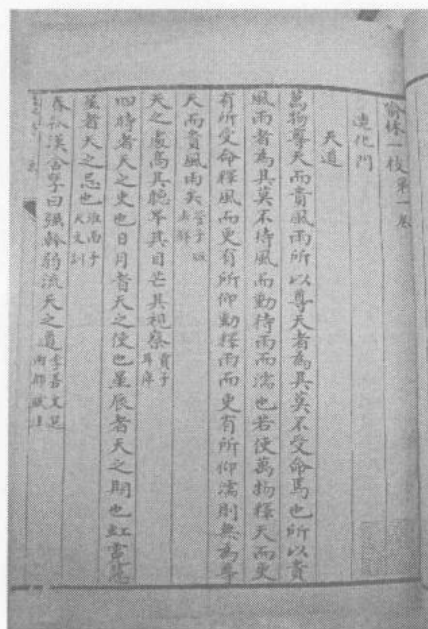 喻林一枝第一卷
造化門
天道
萬物尊天而貴風雨所以尊天者為其莫不受命焉也所以貴
風雨者為其莫不待風而動待雨而濡也若使萬物釋天而更
有所受命釋風而更有所仰動釋雨而更有所仰濡則無為尊
天而貴風雨矣 管子版法解
天之處高其聽卑其目芒其視察 賈子耳痺
四時者天之吏也日月者天之使也星辰者天之期也虹霓彗
星者天之忌也 淮南子天文訓
春秋漢含孳曰強幹弱流天之道 李善文選西都賦注